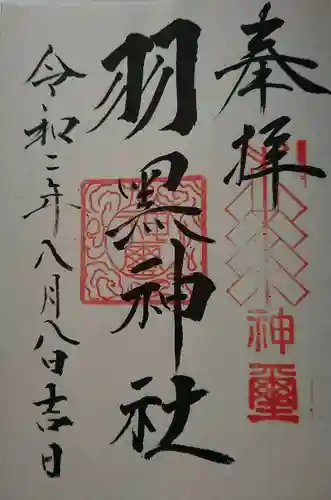 奉拝
羽黒神社
令和二年八月八日吉日
神璽